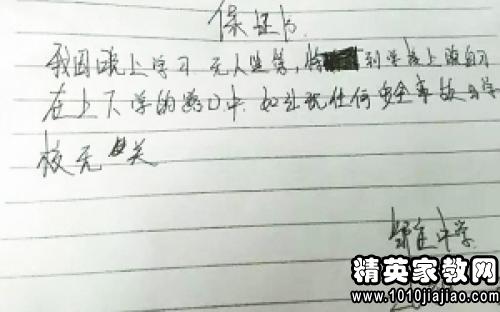 保证书
我因晚上学习无人监管,特到学校上晚自习
在上下学的路口中.如出现任何安全事故与学
校无关
中学
精英家教网
www.1010jiajiao.com